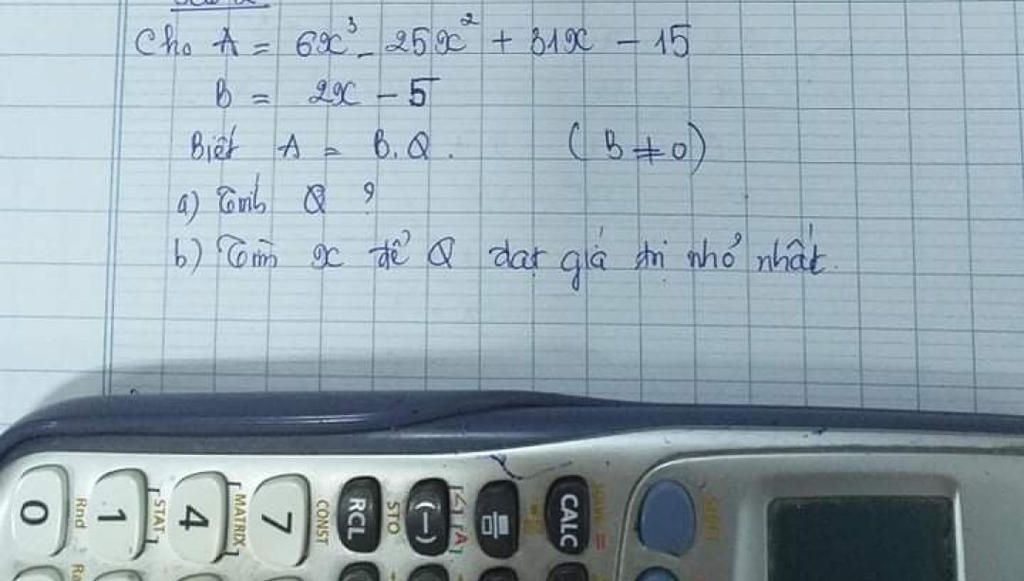 Cho A = 6x³ - 25x² + 31x - 15
B = 2x - 5
Biết A = B.Q. (B ≠ 0)
a) Tính Q ?
b) Tìm x để Q đạt giá trị nhỏ nhất.
SHIFT
CALC
RCL
STO
CONST
(−)
[A]
7
MATRIX
4
STAT
1
Rnd
0